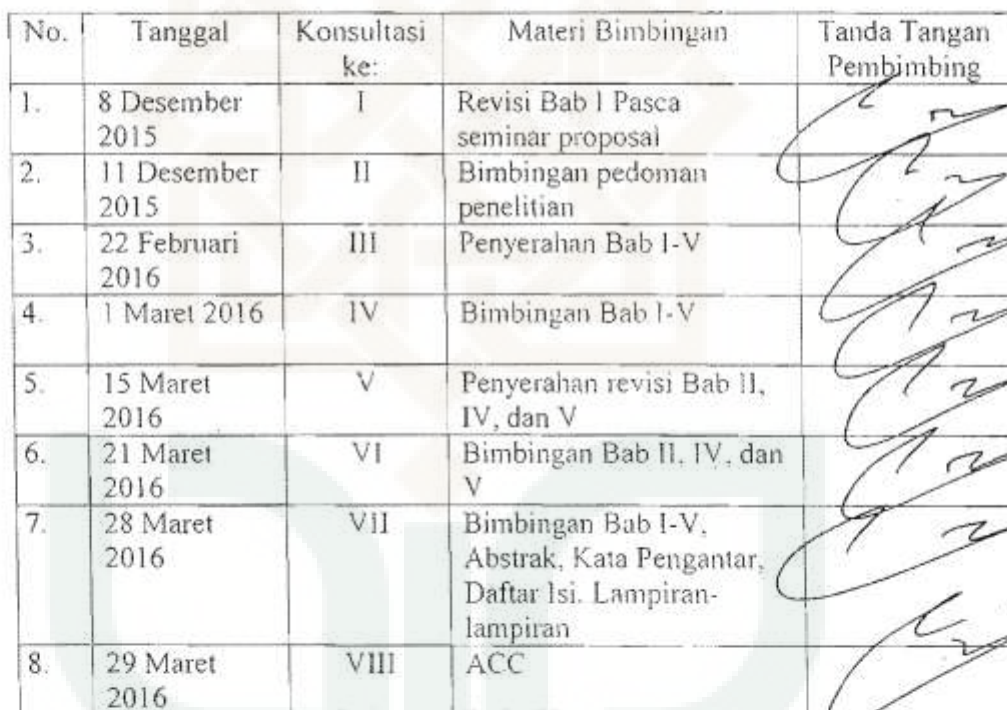 No. Tanggal Konsultasi ke: Materi Bimbingan Tanda Tangan Pembimbing
1. 8 Desember 2015 I Revisi Bab I Pasca seminar proposal
2. 11 Desember 2015 II Bimbingan pedoman penelitian
3. 22 Februari 2016 III Penyerahan Bab I-V
4. 1 Maret 2016 IV Bimbingan Bab I-V
5. 15 Maret 2016 V Penyerahan revisi Bab II, IV, dan V
6. 21 Maret 2016 VI Bimbingan Bab II, IV, dan V
7. 28 Maret 2016 VII Bimbingan Bab I-V, Abstrak, Kata Pengantar, Daftar Isi. Lampiran-lampiran
8. 29 Maret 2016 VIII ACC